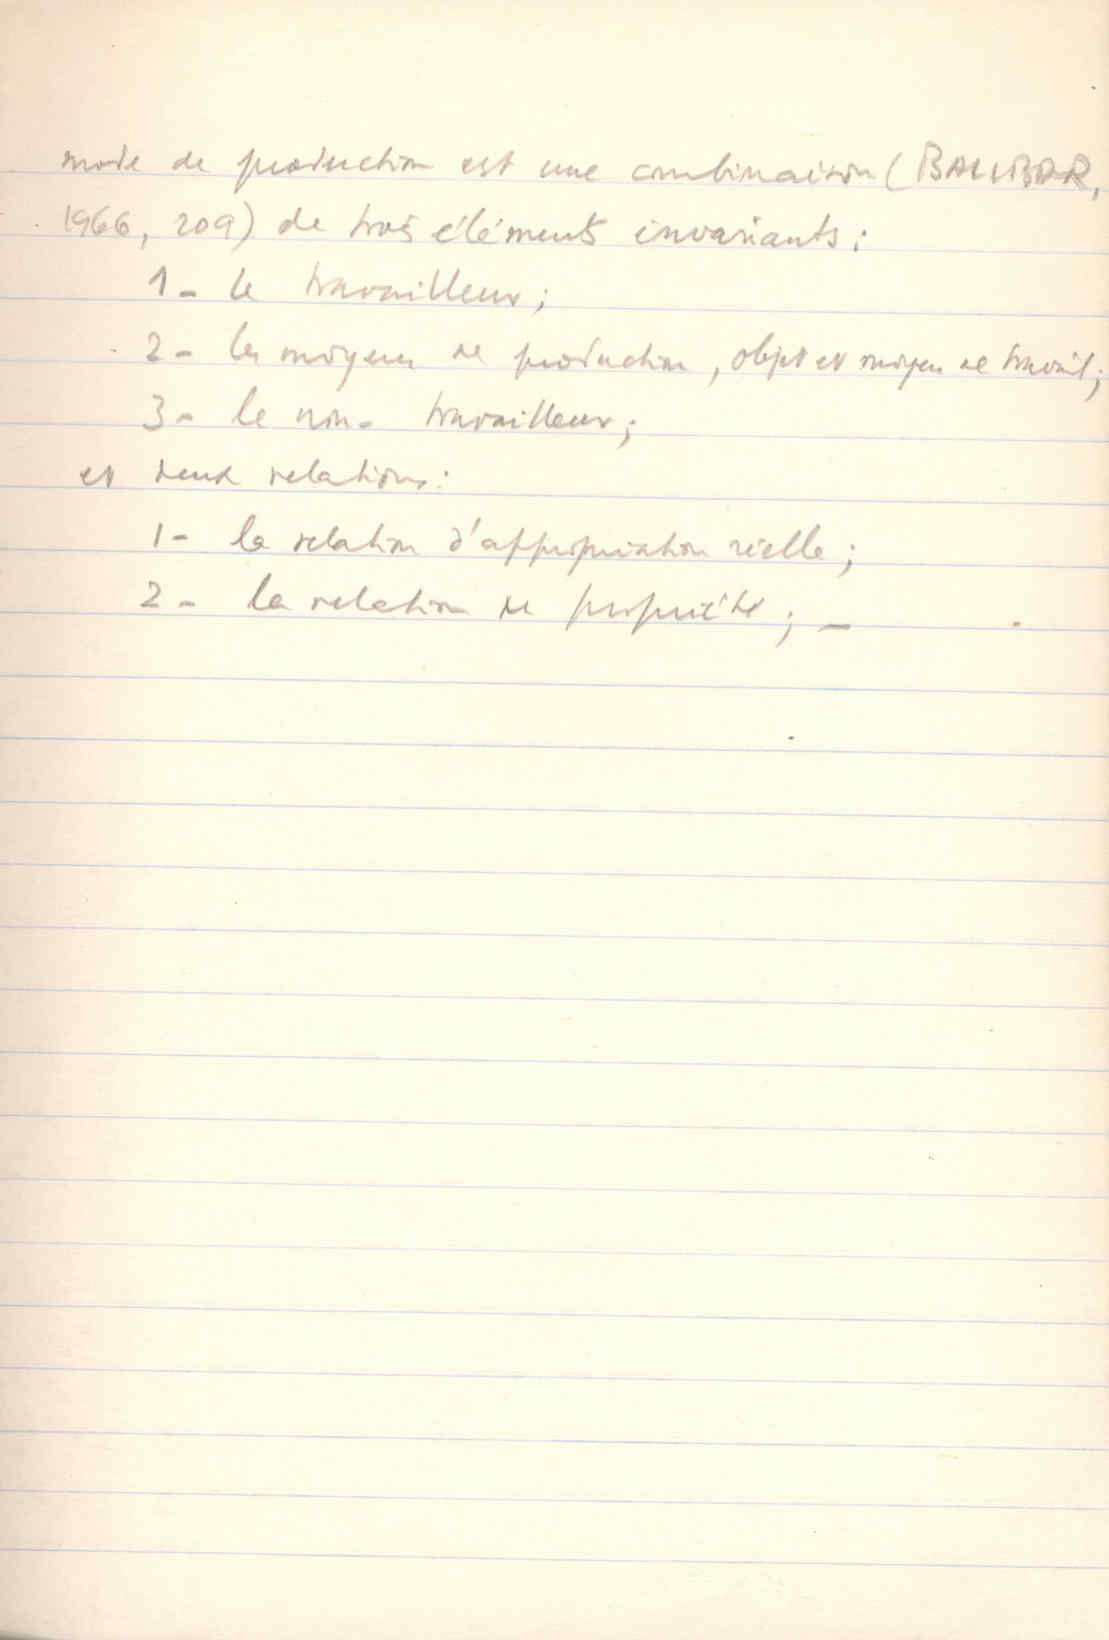 mode de production est une combinaison (BALIBAR,
1966, 209) de trois éléments invariants :
1 - le travailleur ;
2 - les moyens de production, objet et moyen de travail ;
3 - le non - travailleur ;
et deux relations :
1 - la relation d'appropriation réelle ;
2 - la relation de propriété ; -